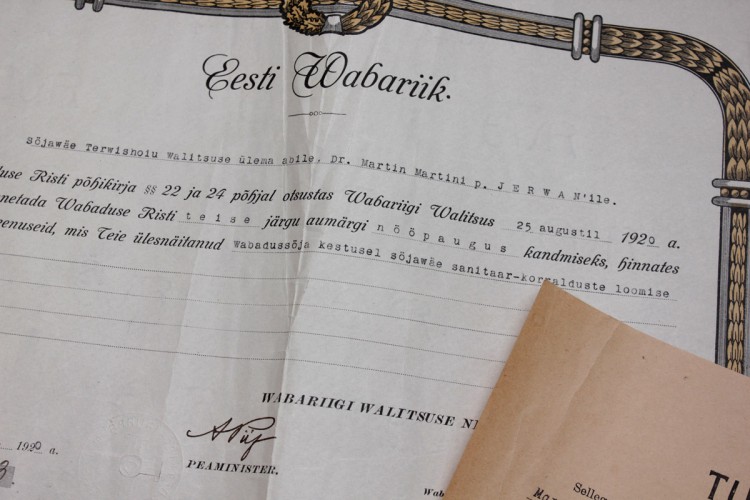 Eesti Wabariik.
Sõjawäe Terwisnoiu Walitsuse ülema abile, Dr. Martin Martini p. J E R W A N'ile.
duse Risti põhikirja §§ 22 ja 24 põhjal otsustas Wabariigi Walitsus 25 augustil 1920 a.
netada Wabaduse Risti teise järgu aumärgi nööpaugus kandmiseks, hinnates
enuseid, mis Teie ülesnäitanud Wabadussõja kestusel sõjawäe sanitaar-korralduste loomise
WABARIIGI WALITSUSE NI
1920 a.
PEAMINISTER.
3.
Wab
Selleg
Mar
TU